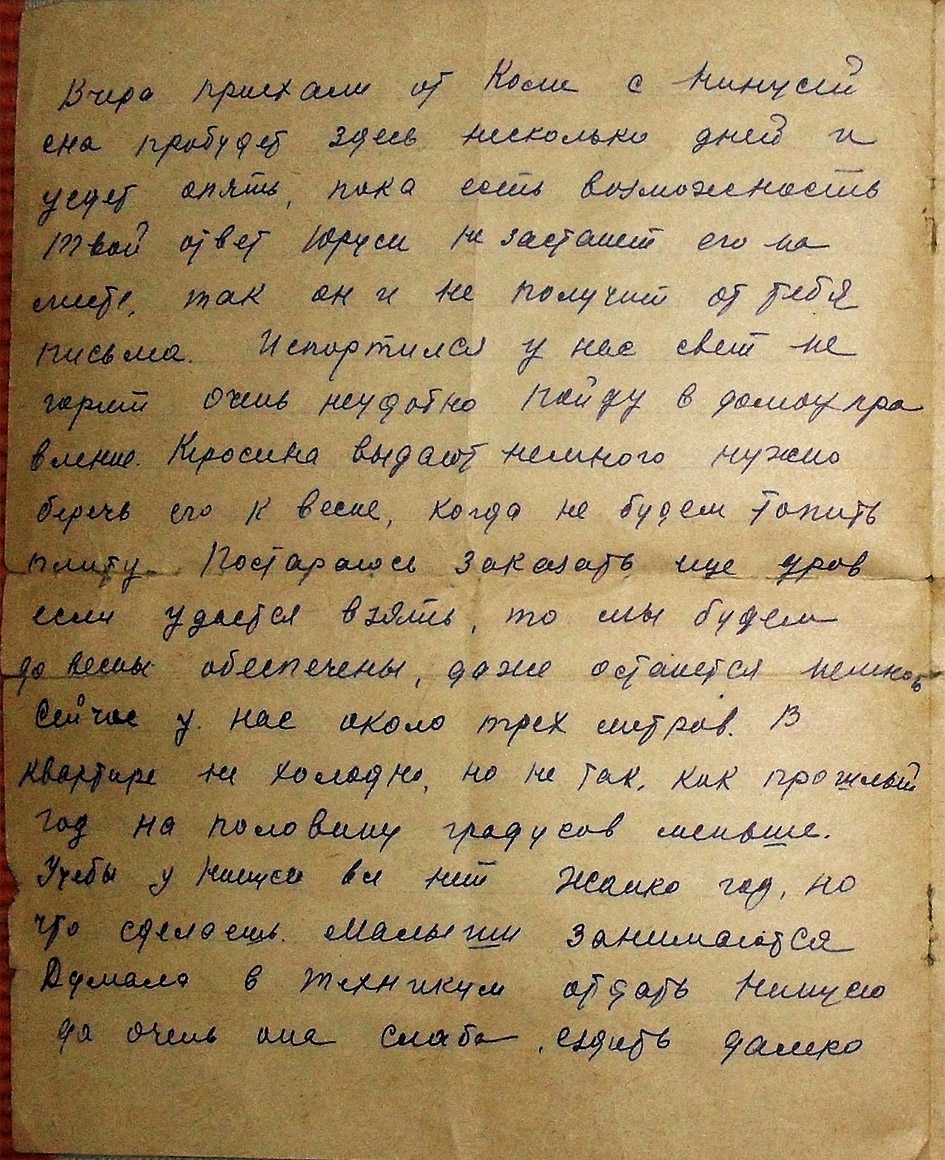 Вчера приехали от Коли с Нинусей
она пробудет здесь несколько дней и
уедет опять, пока есть возможность
Твой ответ Юруси не застанет его на
месте, так он и не получит от тебя
письма. Испортился у нас свет не
горит очень неудобно Пойду в домоупра
вление. Керосина выдают немного нужно
беречь его к весне, когда не будем топить
плиту. Постараюсь заказать еще дров
если удастся взять, то мы будем
до весны обеспечены, даже останется немного
Сейчас у нас около трех метров. В
квартире не холодно, но не так, как прошлый
год на половину градусов меньше.
Учебы у Нинуси все нет Жалко год, но
что сделаешь. Малыши занимаются
Думала в техникум отдать Нинусю
да очень она слаба, ездить далеко